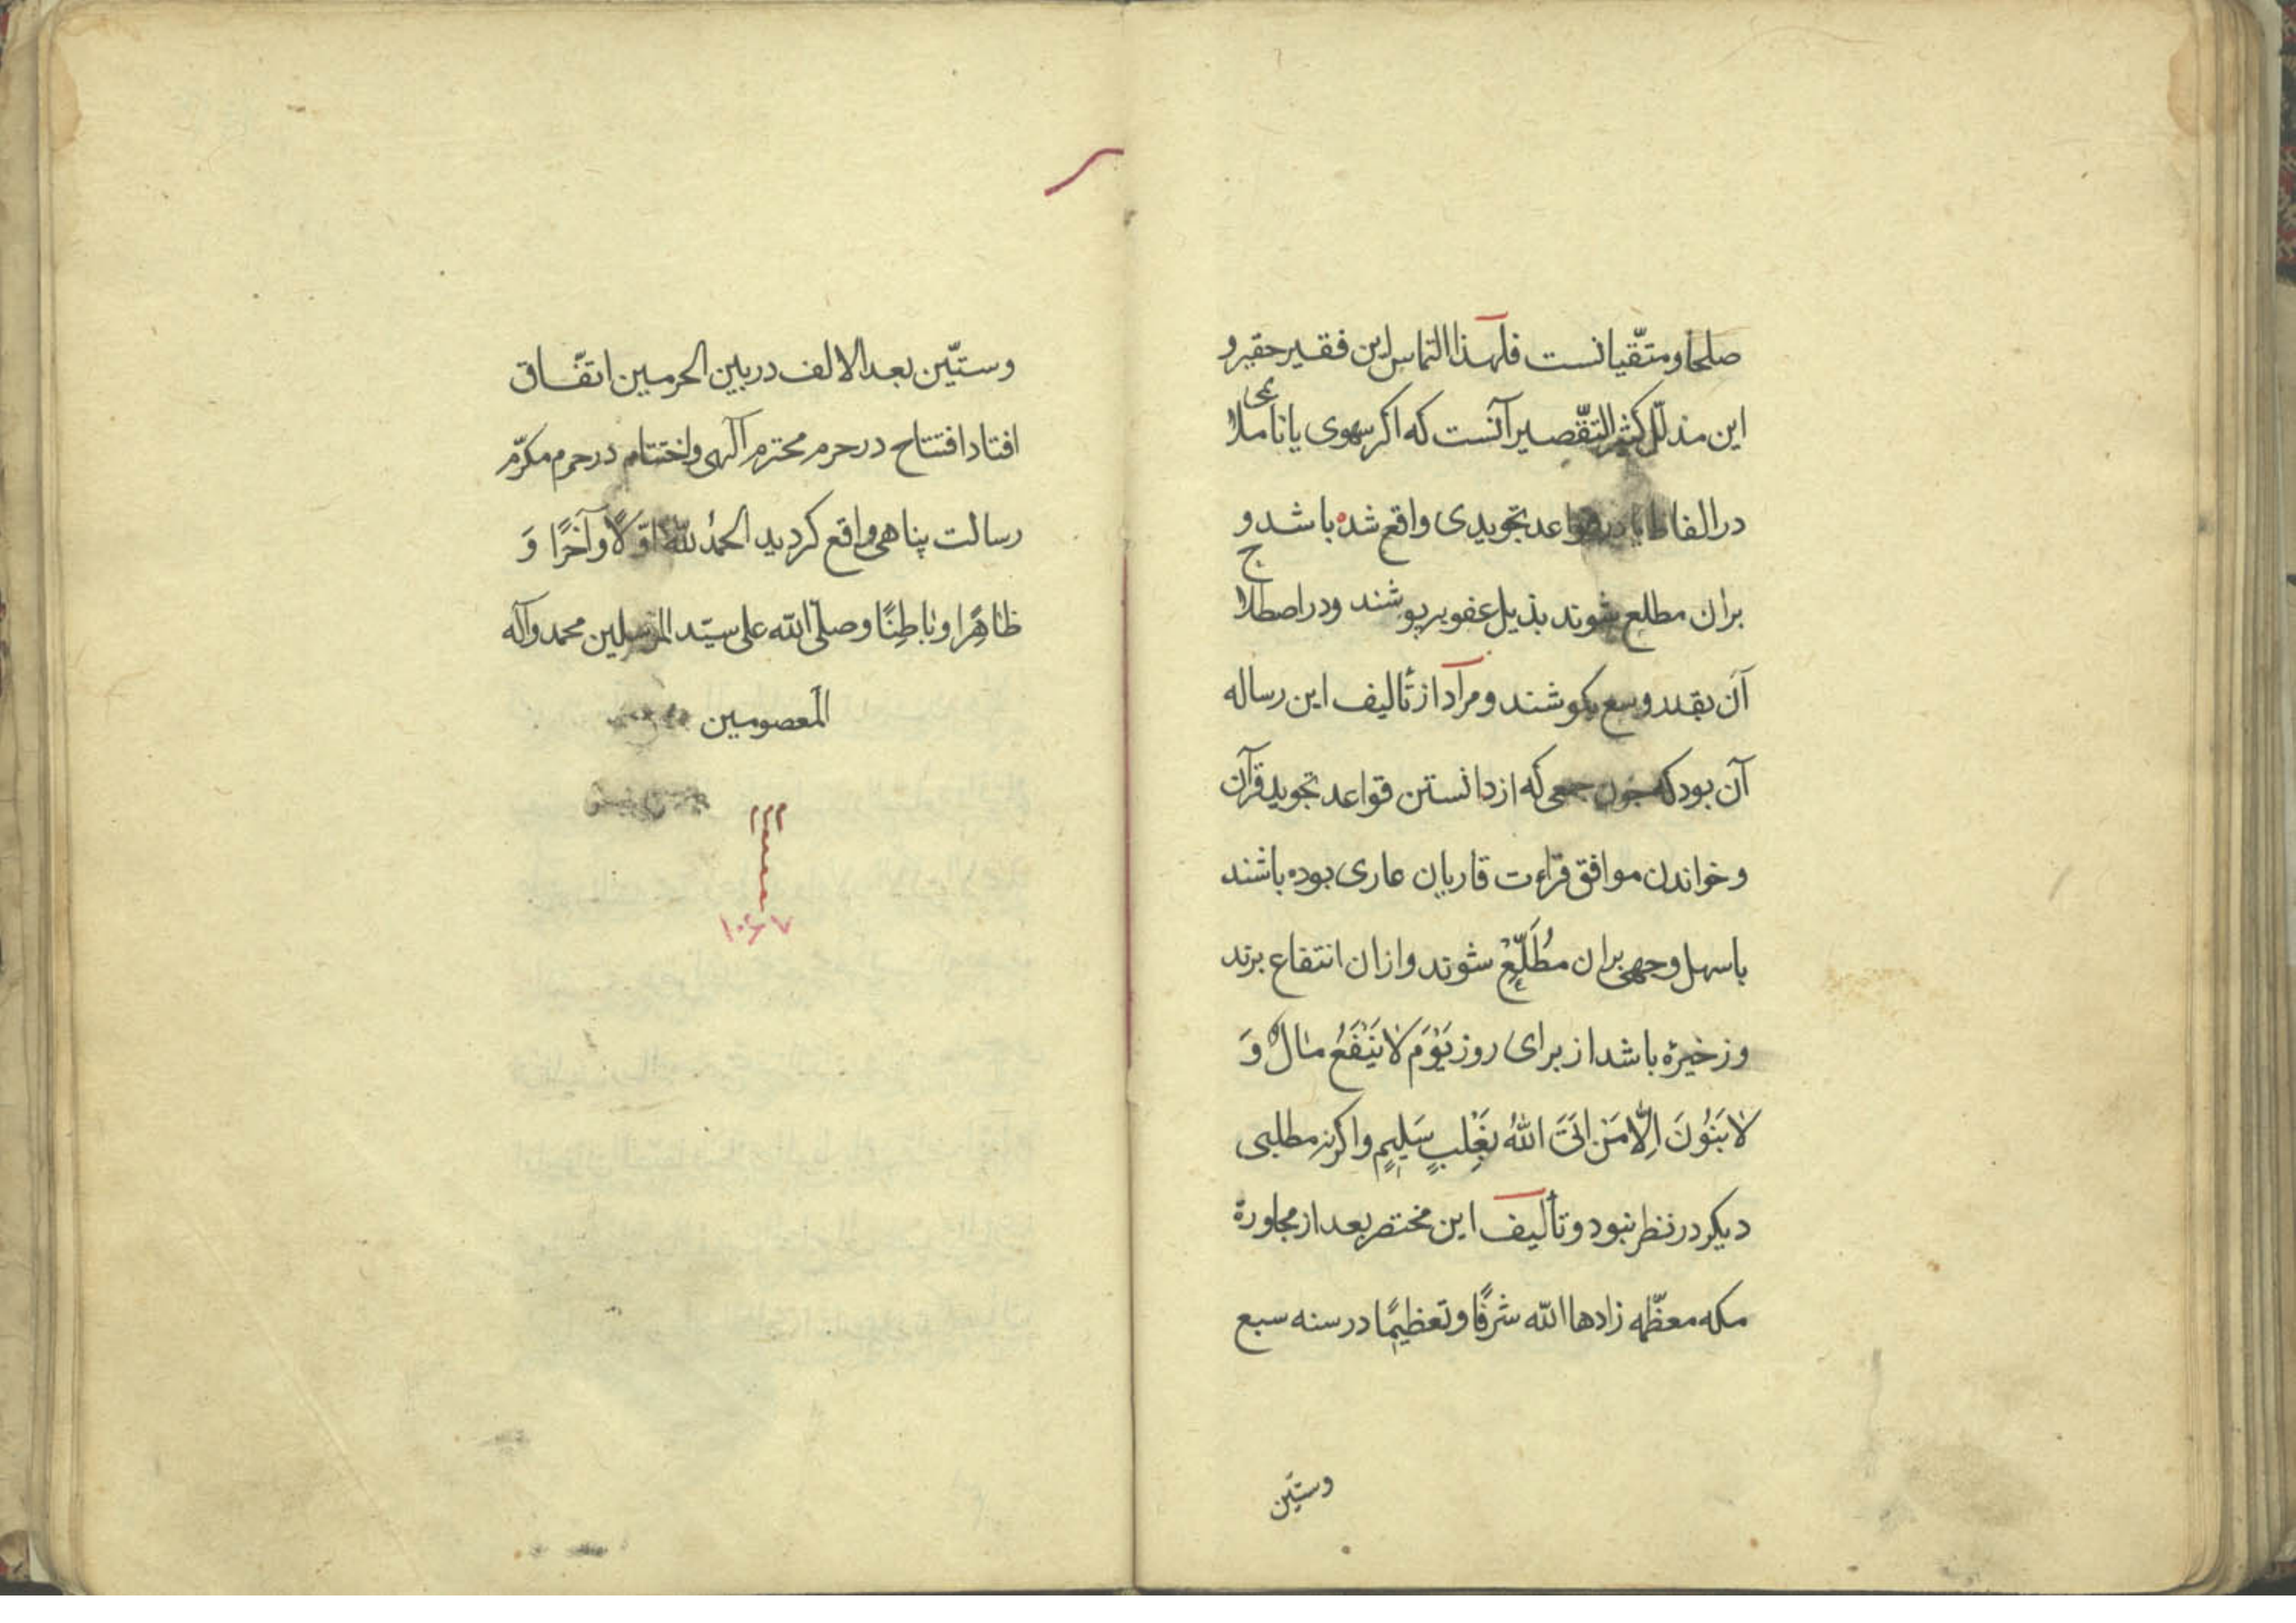 صلحا و متّقیانست فلهذا التماس این فقیر حقیر و
این مذلّل کثیر التّقصیر آنست که اکر سهوی یا ناملا
ئمی
در الفاظ یا در قواعد تجویدی واقع شده باشد و
بران مطلع شوند بذیل عفو بر پوشند و در اصطلا
ح
آن بقدر وسع بکوشند و مراد از تألیف این رساله
آن بود که چون جمعی که از دانستن قواعد تجوید قرآن
و خواندن موافق قراءت قاریان عاری بوده باشند
باسهل وجهی بران مُطَّلِعْ شوند و ازان انتفاع برند
و زخیره باشد از برای روز یَوْمَ لَا یَنْفَعُ مَالٌ وَ
لَا بَنُونَ اِلَّا مَنْ اَتَی اللّٰهُ بِقَلبٍ سَلِیمٍ و اکر نه مطلبی
دیکر در نظر نبود و تألیف این مختصر بعد از مجاورة
مکه معظّمه زادها اللّه شرفًا و تعظیمًا در سنه سبع
وستّین
وستّین بعد الالف در بین الحرمین اتفّاق
افتاد افتتاح در حرم محترم آلهی و اختتام در حرم مکرّم
رسالت پناهی واقع کردید الحمدُ للّه اوّلًا و آخرًا وَ
ظاهِرًا و باطِنًا و صلّی اللّه علی سیّد المرسلین محمد و آله
المعصومین
۱۰۶۷